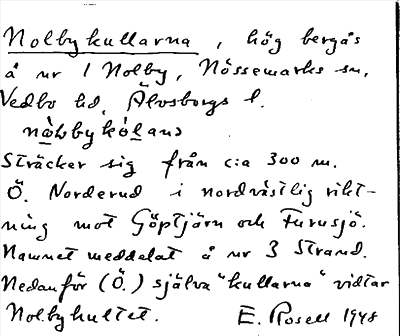 Nolbykullarna, hög bergås
å nr 1 Nolby, Nössemarks sn,
Vedbo hd, Älvsborgs l.
Sträcker sig från c:a 300 m.
Ö. Norderud i nordvästlig rikt-
ning mot Göptjärn och Furusjö.
Namnet meddelat å nr 3 Strand.
Nedanför (Ö.) själva "kullarna" vidtar
Nolbykultet.    E. Rosell 1948